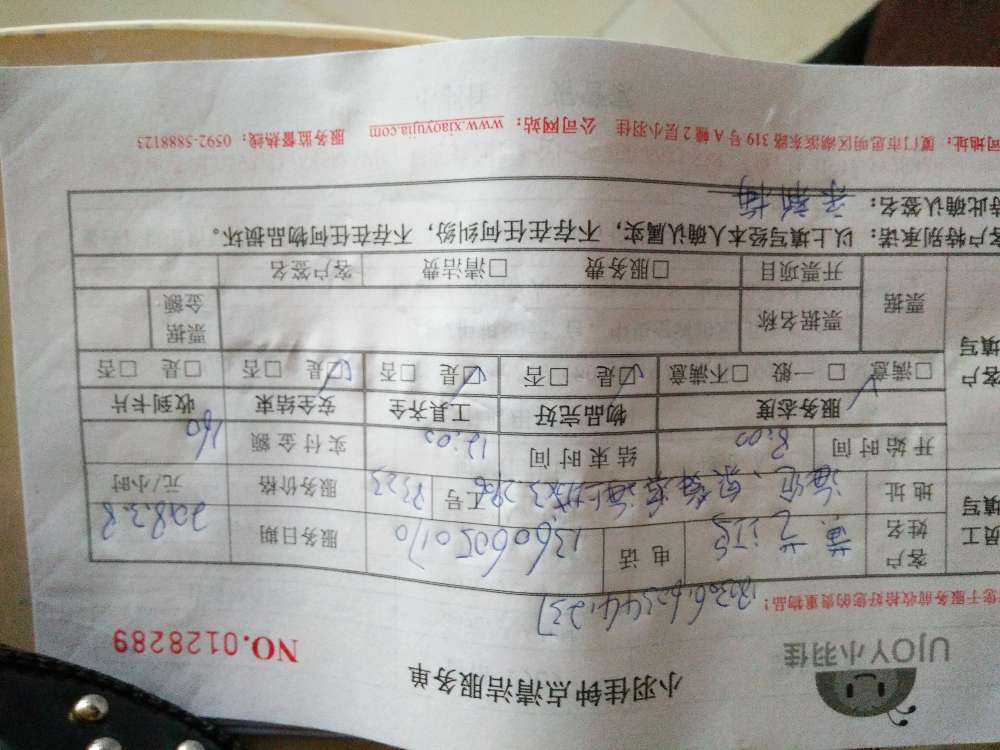 UJOY小羽佳
小羽佳钟点清洁服务单
NO.0128289
您于服务前收拾好您的贵重物品:
员工 填写
客户 姓名 电话 13606050170 服务日期 2018.3.8
地址 工号 8323 服务价格 元/小时
开始时间 8:00 结束时间 12:00 实付金额 160
客户 填写
服务态度 物品完好 工具齐全 安全结束 收到卡片
□满意 □一般 □不满意 □是 □否 □是 □否 □是 □否 □是 □否
票据 票据名称 票据金额
开票项目 □服务费 □清洁费 客户签名
客户特别承诺:以上填写经本人确认属实,不存在任何纠纷,不存在任何物品损坏。
特此确认签名:
司地址:厦门市思明区湖滨东路319号A幢2层小羽佳 公司网站:www.xiaoyujia.com 服务监督热线:0592-5888123